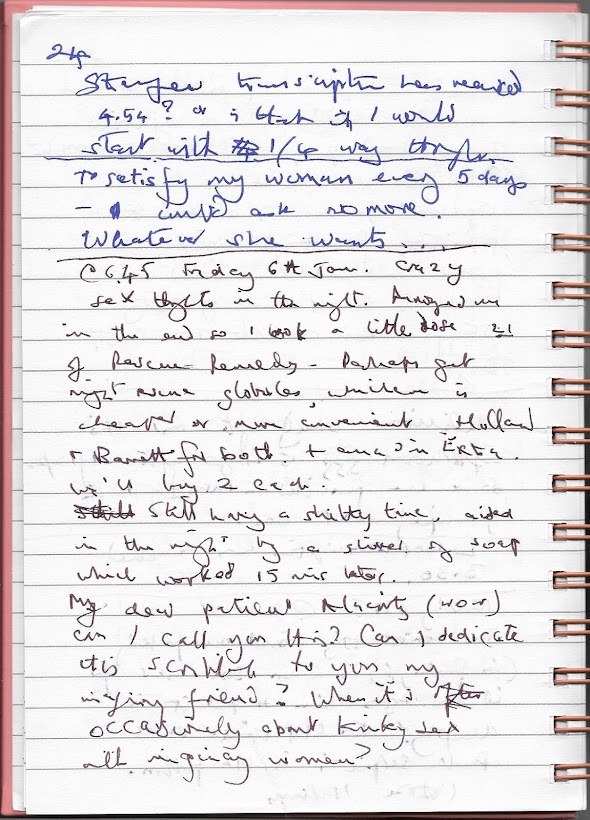 24
transcription has reached
4.54? or is that if I would
start with 1/4 way
To satisfy my woman every 5 days
- I could ask no more.
Whatever she wants...
C 6.45 Friday 6th Jan. Crazy
sex thoughts in the night. Annoyed me
in the end so I took a little dose
of Rescue Remedy - Perhaps get
night rescue globules, whichever is
cheaper or more convenient. Holland
+ Barrett for both. + one in Exeter.
we'll buy 2 each.
Still having a shitty time, aided
in the night by a sliver of soap
which worked 15 mins later.
My dear patient Almighty (wow)
can I call you this? Can I dedicate
this scribble to you my
friend? When it is
occasionally about kinky sex
with imaginary women?